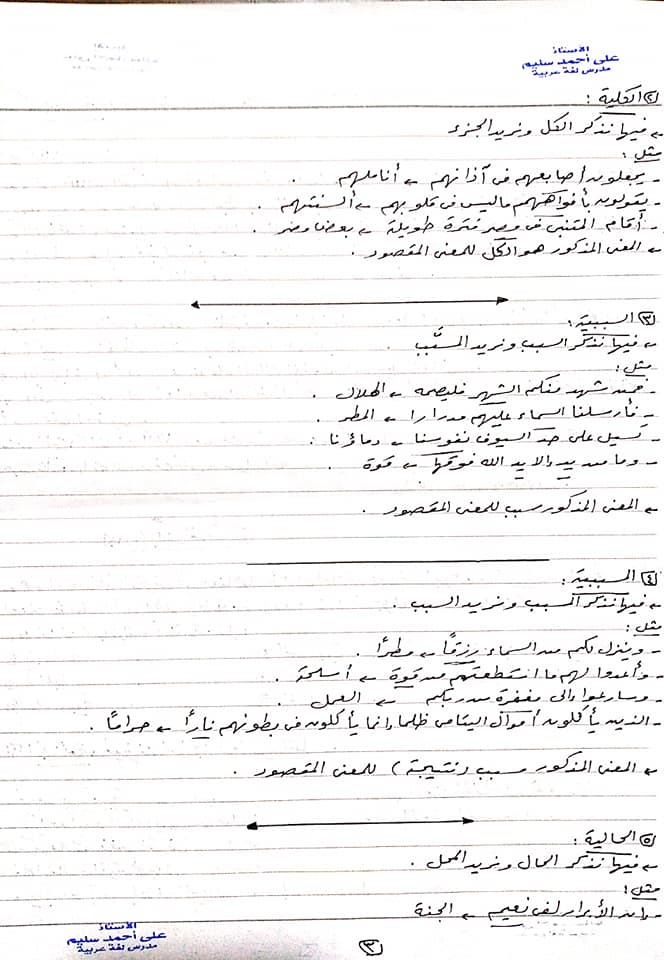 الأستاذ
على أحمد سليم
مدرس لغة عربية
٢ الكلية :
← فيها نذكر الكل ونريد الجزء
مثل :
- يجعلون أصابعهم فى آذانهم ← أناملهم .
- يقولون بأفواههم ما ليس فى قلوبهم ← ألسنتهم .
- أقام المتنبى فى مصر فترة طويلة ← بعض مصر .
← المعنى المذكور هو الكل للمعنى المقصود .
٣ السببية :
← فيها نذكر السبب ونريد المسبَّب
مثل :
- فمن شهد منكم الشهر فليصمه ← الهلال .
- فأرسلنا السماء عليهم مدرارا ← المطر .
- تسيل على حد السيوف نفوسنا ← دماؤنا .
- وما من يد إلا يد الله فوقها ← قوة .
← المعنى المذكور سبب للمعنى المقصود .
٤ المسببية :
← فيها نذكر المسبب ونريد السبب .
مثل :
- وينزل لكم من السماء رزقًا ← مطرًا .
- وأعدوا لهم ما استطعتم من قوة ← أسلحة .
- وسارعوا إلى مغفرة من ربكم ← العمل .
- الذين يأكلون أموال اليتامى ظلما إنما يأكلون فى بطونهم نارًا ← حرامًا .
← المعنى المذكور مسبب (نتيجة) للمعنى المقصود .
٥ الحالية :
← فيها نذكر الحال ونريد المحل .
مثل :
- وإن الأبرار لفى نعيم ← الجنة
الأستاذ
على أحمد سليم
مدرس لغة عربية
٣